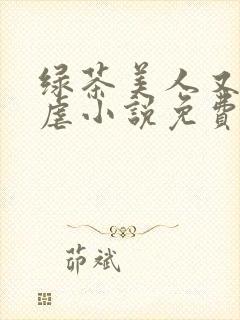 绿茶美人又
虐小説免費
茆斌